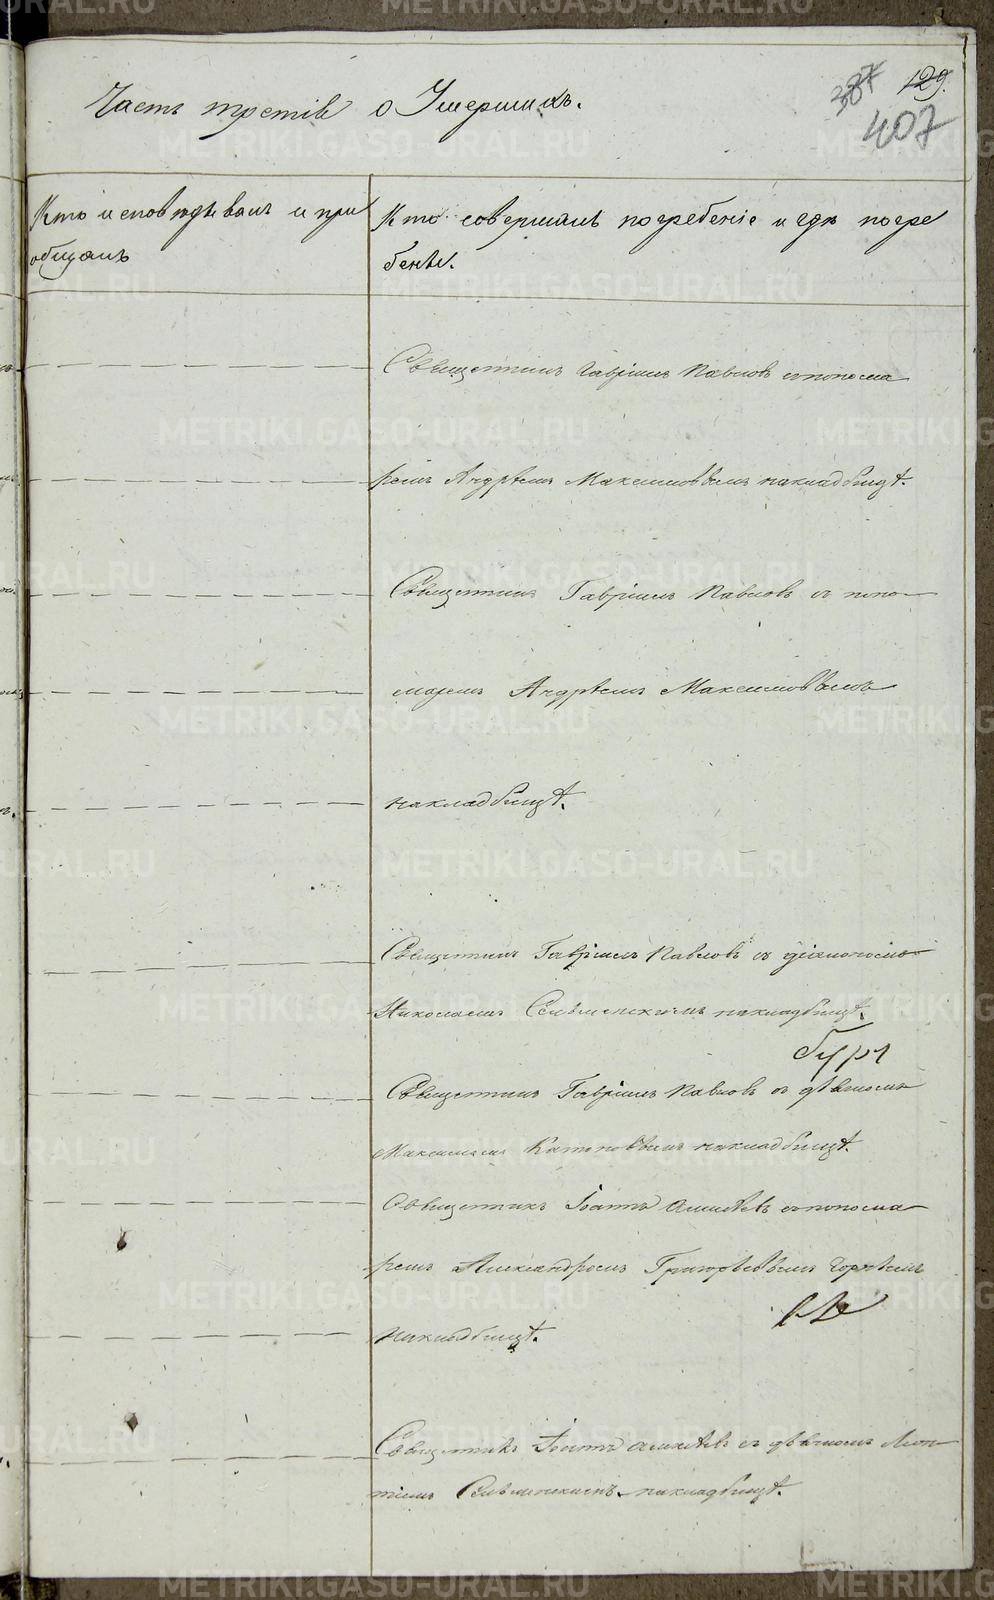 Часть третія о Умершихъ.
387 129.
407
Кто исповѣдывалъ и прі
общалъ
Кто совершалъ погребеніе и гдѣ погре
бены.
Священникъ Гавріилъ Павловъ съ понома
ремъ Андреемъ Максимовымъ на кладбищѣ.
Священникъ Гавріилъ Павловъ съ поно
маремъ Андреемъ Максимовымъ
на кладбищѣ.
Священникъ Гавріилъ Павловъ съ діакономъ
Николаемъ на кладбищѣ.
Священникъ Гавріилъ Павловъ съ дьячкомъ
Максимомъ на кладбищѣ.
Священникъ Іоаннъ съ понома
ремъ Александромъ Григорьевымъ
на кладбищѣ.
Священникъ Іоаннъ съ дьячкомъ Леон
тіемъ на кладбищѣ.
METRIKI.GASO-URAL.RU